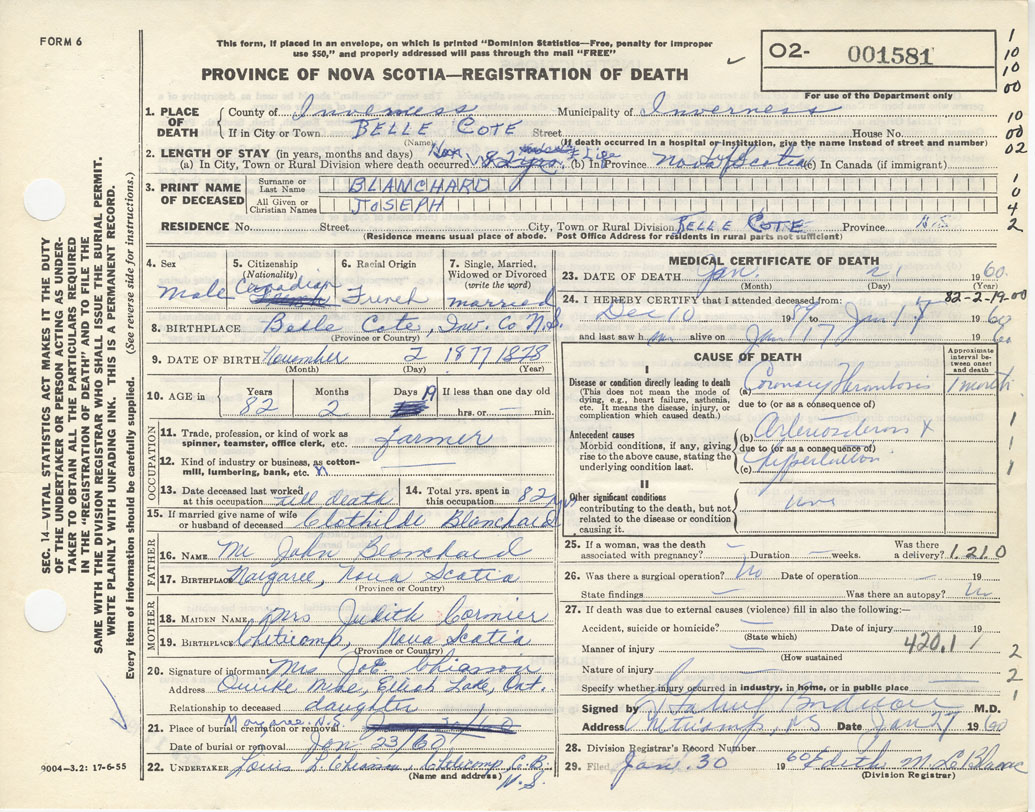 FORM 6
This form, if placed in an envelope, on which is printed "Dominion Statistics—Free, penalty for improper
use $50," and properly addressed will pass through the mail "FREE"
PROVINCE OF NOVA SCOTIA—REGISTRATION OF DEATH
O2- 001581
For use of the Department only
1
10
10
00
1. PLACE OF DEATH { County of Inverness Municipality of Inverness
10
If in City or Town BELLE COTE Street House No.
00
(Name) (If death occurred in a hospital or institution, give the name instead of street and number)
02
2. LENGTH OF STAY (in years, months and days)
(a) In City, Town or Rural Division where death occurred 82 yrs (b) In Province Nova Scotia (c) In Canada (if immigrant)
3. PRINT NAME OF DECEASED { Surname or Last Name BLANCHARD
1
0
All Given or Christian Names JOSEPH
4
RESIDENCE No. Street City, Town or Rural Division BELLE COTE Province N.S.
2
(Residence means usual place of abode. Post Office Address for residents in rural parts not sufficient)
4. Sex
Male
5. Citizenship
(Nationality)
Canadian
6. Racial Origin
French
7. Single, Married,
Widowed or Divorced
(write the word)
married
8. BIRTHPLACE Belle Cote, Inv. Co N.S.
(Province or Country)
9. DATE OF BIRTH November 2 1877 1878
(Month) (Day) (Year)
10. AGE in
Years Months Days If less than one day old
82 2 19 hrs. or — min.
OCCUPATION
11. Trade, profession, or kind of work as
spinner, teamster, office clerk, etc. farmer
12. Kind of industry or business, as cotton-
mill, lumbering, bank, etc.
13. Date deceased last worked
at this occupation till death
14. Total yrs. spent in
this occupation 82 yrs
15. If married give name of wife
or husband of deceased Clothilde Blanchard
FATHER
16. NAME Mr John Blanchard
17. BIRTHPLACE Margaree, Nova Scotia
(Province or Country)
MOTHER
18. MAIDEN NAME Mrs Judith Cormier
19. BIRTHPLACE Cheticamp, Nova Scotia
(Province or Country)
20. Signature of informant Mrs Joe Chiasson
Address Quirke Mine, Elliot Lake, Ont.
Relationship to deceased daughter
21. Place of burial cremation or removal Margaree N.S.
Date of burial or removal Jan 23/60
22. UNDERTAKER Louis L Chiasson, Cheticamp, C.B.
(Name and address) N.S.
MEDICAL CERTIFICATE OF DEATH
23. DATE OF DEATH Jan. 21 1960
(Month) (Day)
24. I HEREBY CERTIFY that I attended deceased from: 82-2-19-00
Dec 10 19 to Jan 17 1960
and last saw h im alive on Jan 17 1960
CAUSE OF DEATH
Approximate
interval be-
tween onset
and death
I
Disease or condition directly leading to death
(This does not mean the mode of
dying, e.g., heart failure, asthenia,
etc. It means the disease, injury, or
complication which caused death.)
(a) Coronary Thrombosis 1 month
due to (or as a consequence of)
Antecedent causes
Morbid conditions, if any, giving
rise to the above cause, stating the
underlying condition last.
(b) Arteriosclerosis
due to (or as a consequence of)
(c) Hypertension
1
1
1
II
Other significant conditions
contributing to the death, but not
related to the disease or condition
causing it.
none
25. If a woman, was the death
associated with pregnancy? — Duration — weeks. Was there
a delivery? 1.2.1.0
26. Was there a surgical operation? No Date of operation — 19
State findings — Was there an autopsy? No
27. If death was due to external causes (violence) fill in also the following:—
Accident, suicide or homicide? — Date of injury 19
(State which)
Manner of injury — 420.1
(How sustained
2
Nature of injury
2
Specify whether injury occurred in industry, in home, or in public place
1
Signed by M.D.
Address Cheticamp, N.S Date Jan 1960
28. Division Registrar's Record Number
29. Filed Jan. 30 1960 Edith M LeBlanc
(Division Registrar)
SEC. 14—VITAL STATISTICS ACT MAKES IT THE DUTY
OF THE UNDERTAKER OR PERSON ACTING AS UNDER-
TAKER TO OBTAIN ALL THE PARTICULARS REQUIRED
IN THE "REGISTRATION OF DEATH" AND TO FILE THE
SAME WITH THE DIVISION REGISTRAR WHO SHALL ISSUE THE BURIAL PERMIT.
WRITE PLAINLY WITH UNFADING INK. THIS IS A PERMANENT RECORD.
Every item of information should be carefully supplied. (See reverse side for instructions.)
9004-3.2: 17-6-55